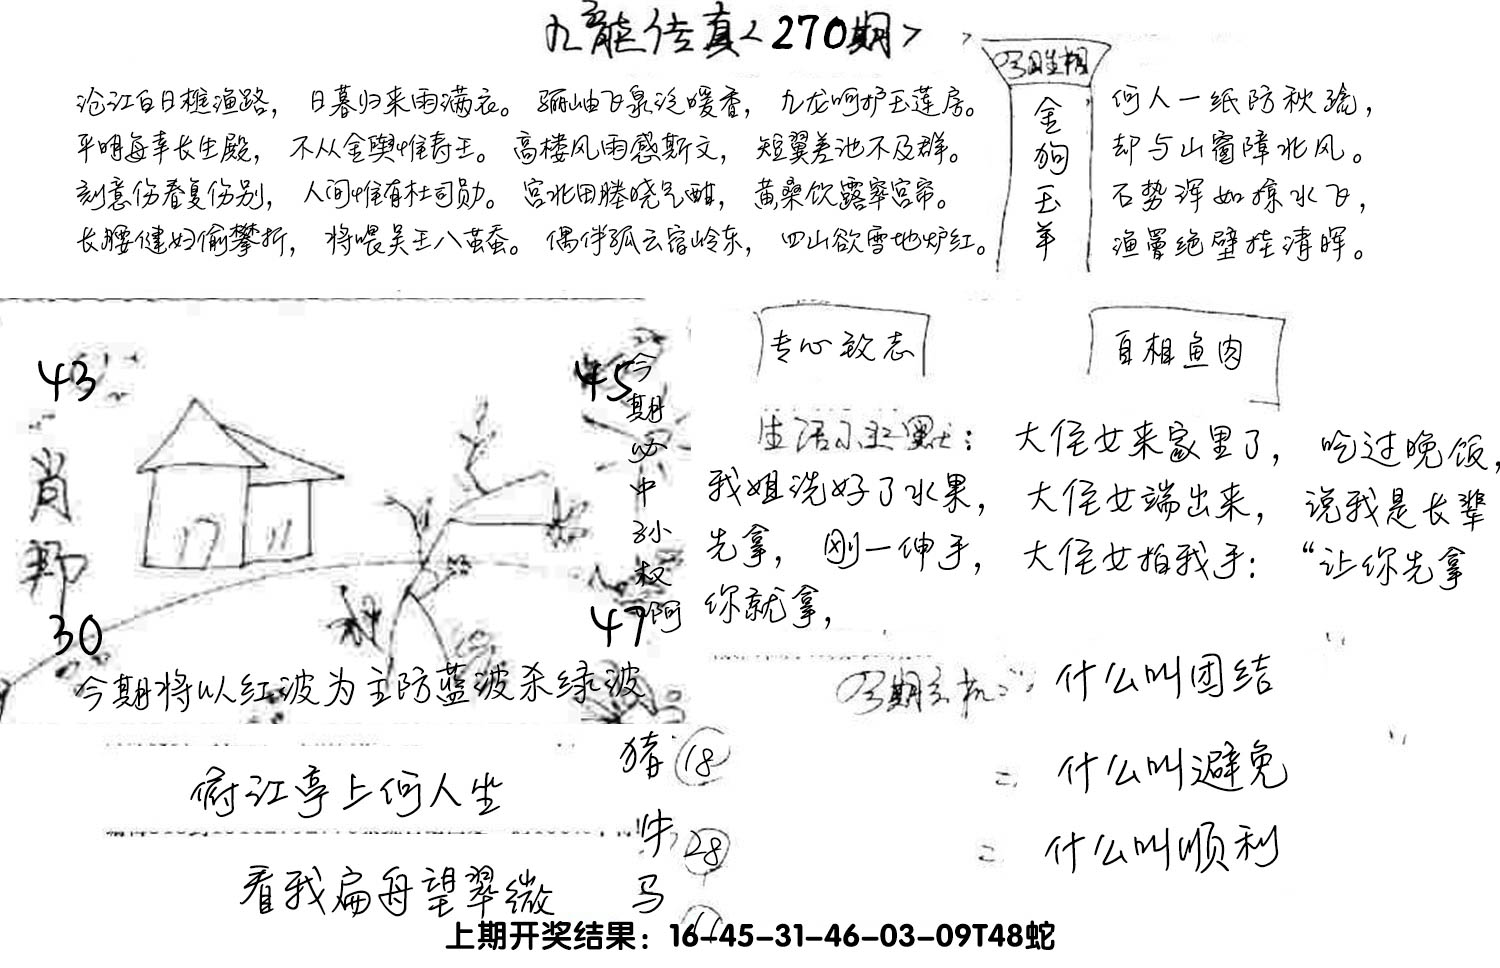 九龍传真<270期>
沧江白日樵渔路，日暮归来雨满衣。骊岫飞泉泛暖香，九龙呵护玉莲房。
平明每幸长生殿，不从金舆惟寿王。高楼风雨感斯文，短翼差池不及群。
刻意伤春复伤别，人间惟有杜司勋。宫北田塍晓气酣，黄桑饮露窣宫帘。
长腰健妇偷攀折，将喂吴王八茧蚕。偶伴孤云宿岭东，四山欲雪地炉红。
今日生相
金狗玉羊
何人一纸防秋疏，
却与山窗障北风。
石势浑如掠水飞，
渔罾绝壁挂清晖。
43
45
肖
30
47
今期必中孙权阿
今期将以红波为主防蓝波杀绿波
专心致志
自相鱼肉
生活小幽默：大侄女来家里了，吃过晚饭，
我姐洗好了水果，大侄女端出来，说我是长辈
先拿，刚一伸手，大侄女拍我手：“让你先拿
你就拿，
今期玄机：什么叫团结
= 什么叫避免
= 什么叫顺利
俯江亭上何人坐
看我扁舟望翠微
猪 18
牛 28
马
上期开奖结果：16-45-31-46-03-09T48蛇